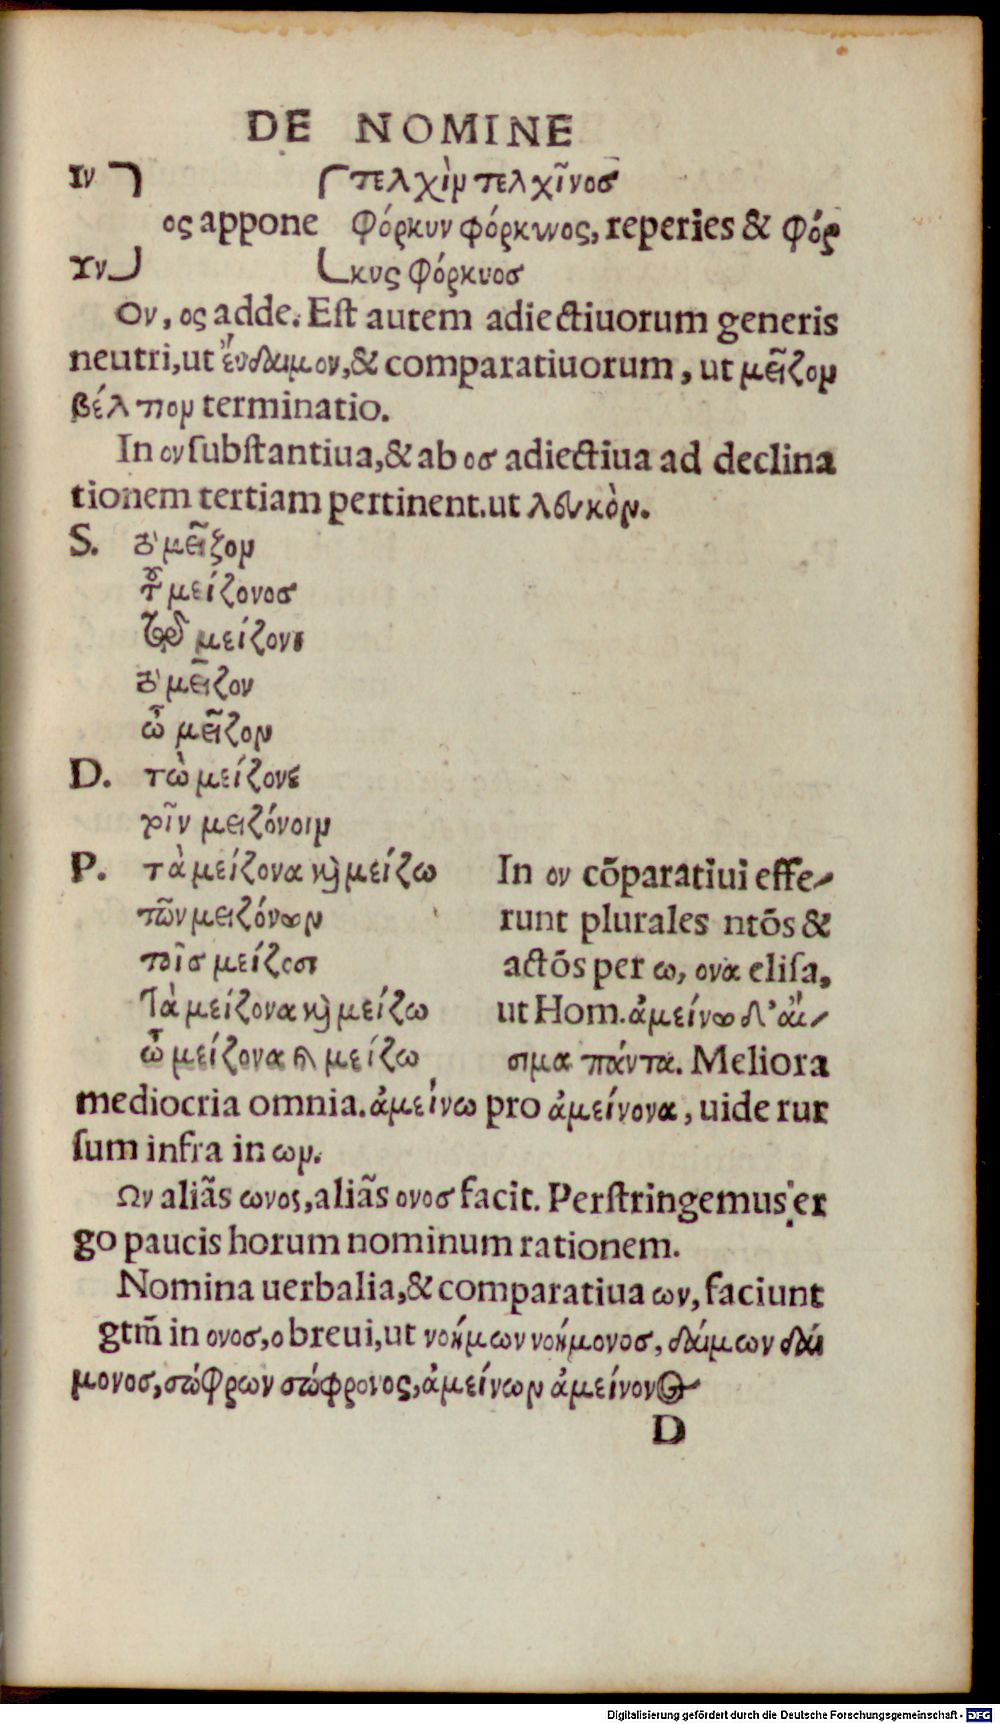 DE NOMINE
Ιν πελχὶν πελχῖνος
ος appone φόρκυν φόρκυνος, reperies & φόρ
Υν κυς φόρκυος
Ον, ος adde. Est autem adiectiuorum generis
neutri, ut ἔυδαιμον, & comparatiuorum, ut μεῖζον
βέλτιον terminatio.
In ον substantiua, & ab ος adiectiua ad declina
tionem tertiam pertinent. ut λευκὸν.
S. τὸ μεῖζον
τοῦ μείζονος
τῷ μείζονι
τὸ μεῖζον
ὦ μεῖζον
D. τὼ μείζονε
τοῖν μειζόνοιν
P. τὰ μείζονα καὶ μείζω In ον cōparatiui effe-
τῶν μειζόνων runt plurales ntōs &
τοῖς μείζοσι actōs per ω, ονα elisa,
Τὰ μείζονα καὶ μείζω ut Hom. ἀμείνω δ'αἴ-
ὦ μείζονα ϗ μείζω σιμα πάντα. Meliora
mediocria omnia. ἀμείνω pro ἀμείνονα, uide rur
sum infra in ων.
Ων aliās ωνος, aliās ονος facit. Perstringemus er
go paucis horum nominum rationem.
Nomina uerbalia, & comparatiua ων, faciunt
gtm̄ in ονος, o breui, ut νοήμων νοήμονος, δαίμων δαί
μονος, σώφρων σώφρονος, ἀμείνων ἀμείνονος
D
Digitalisierung gefördert durch die Deutsche Forschungsgemeinschaft - DFG